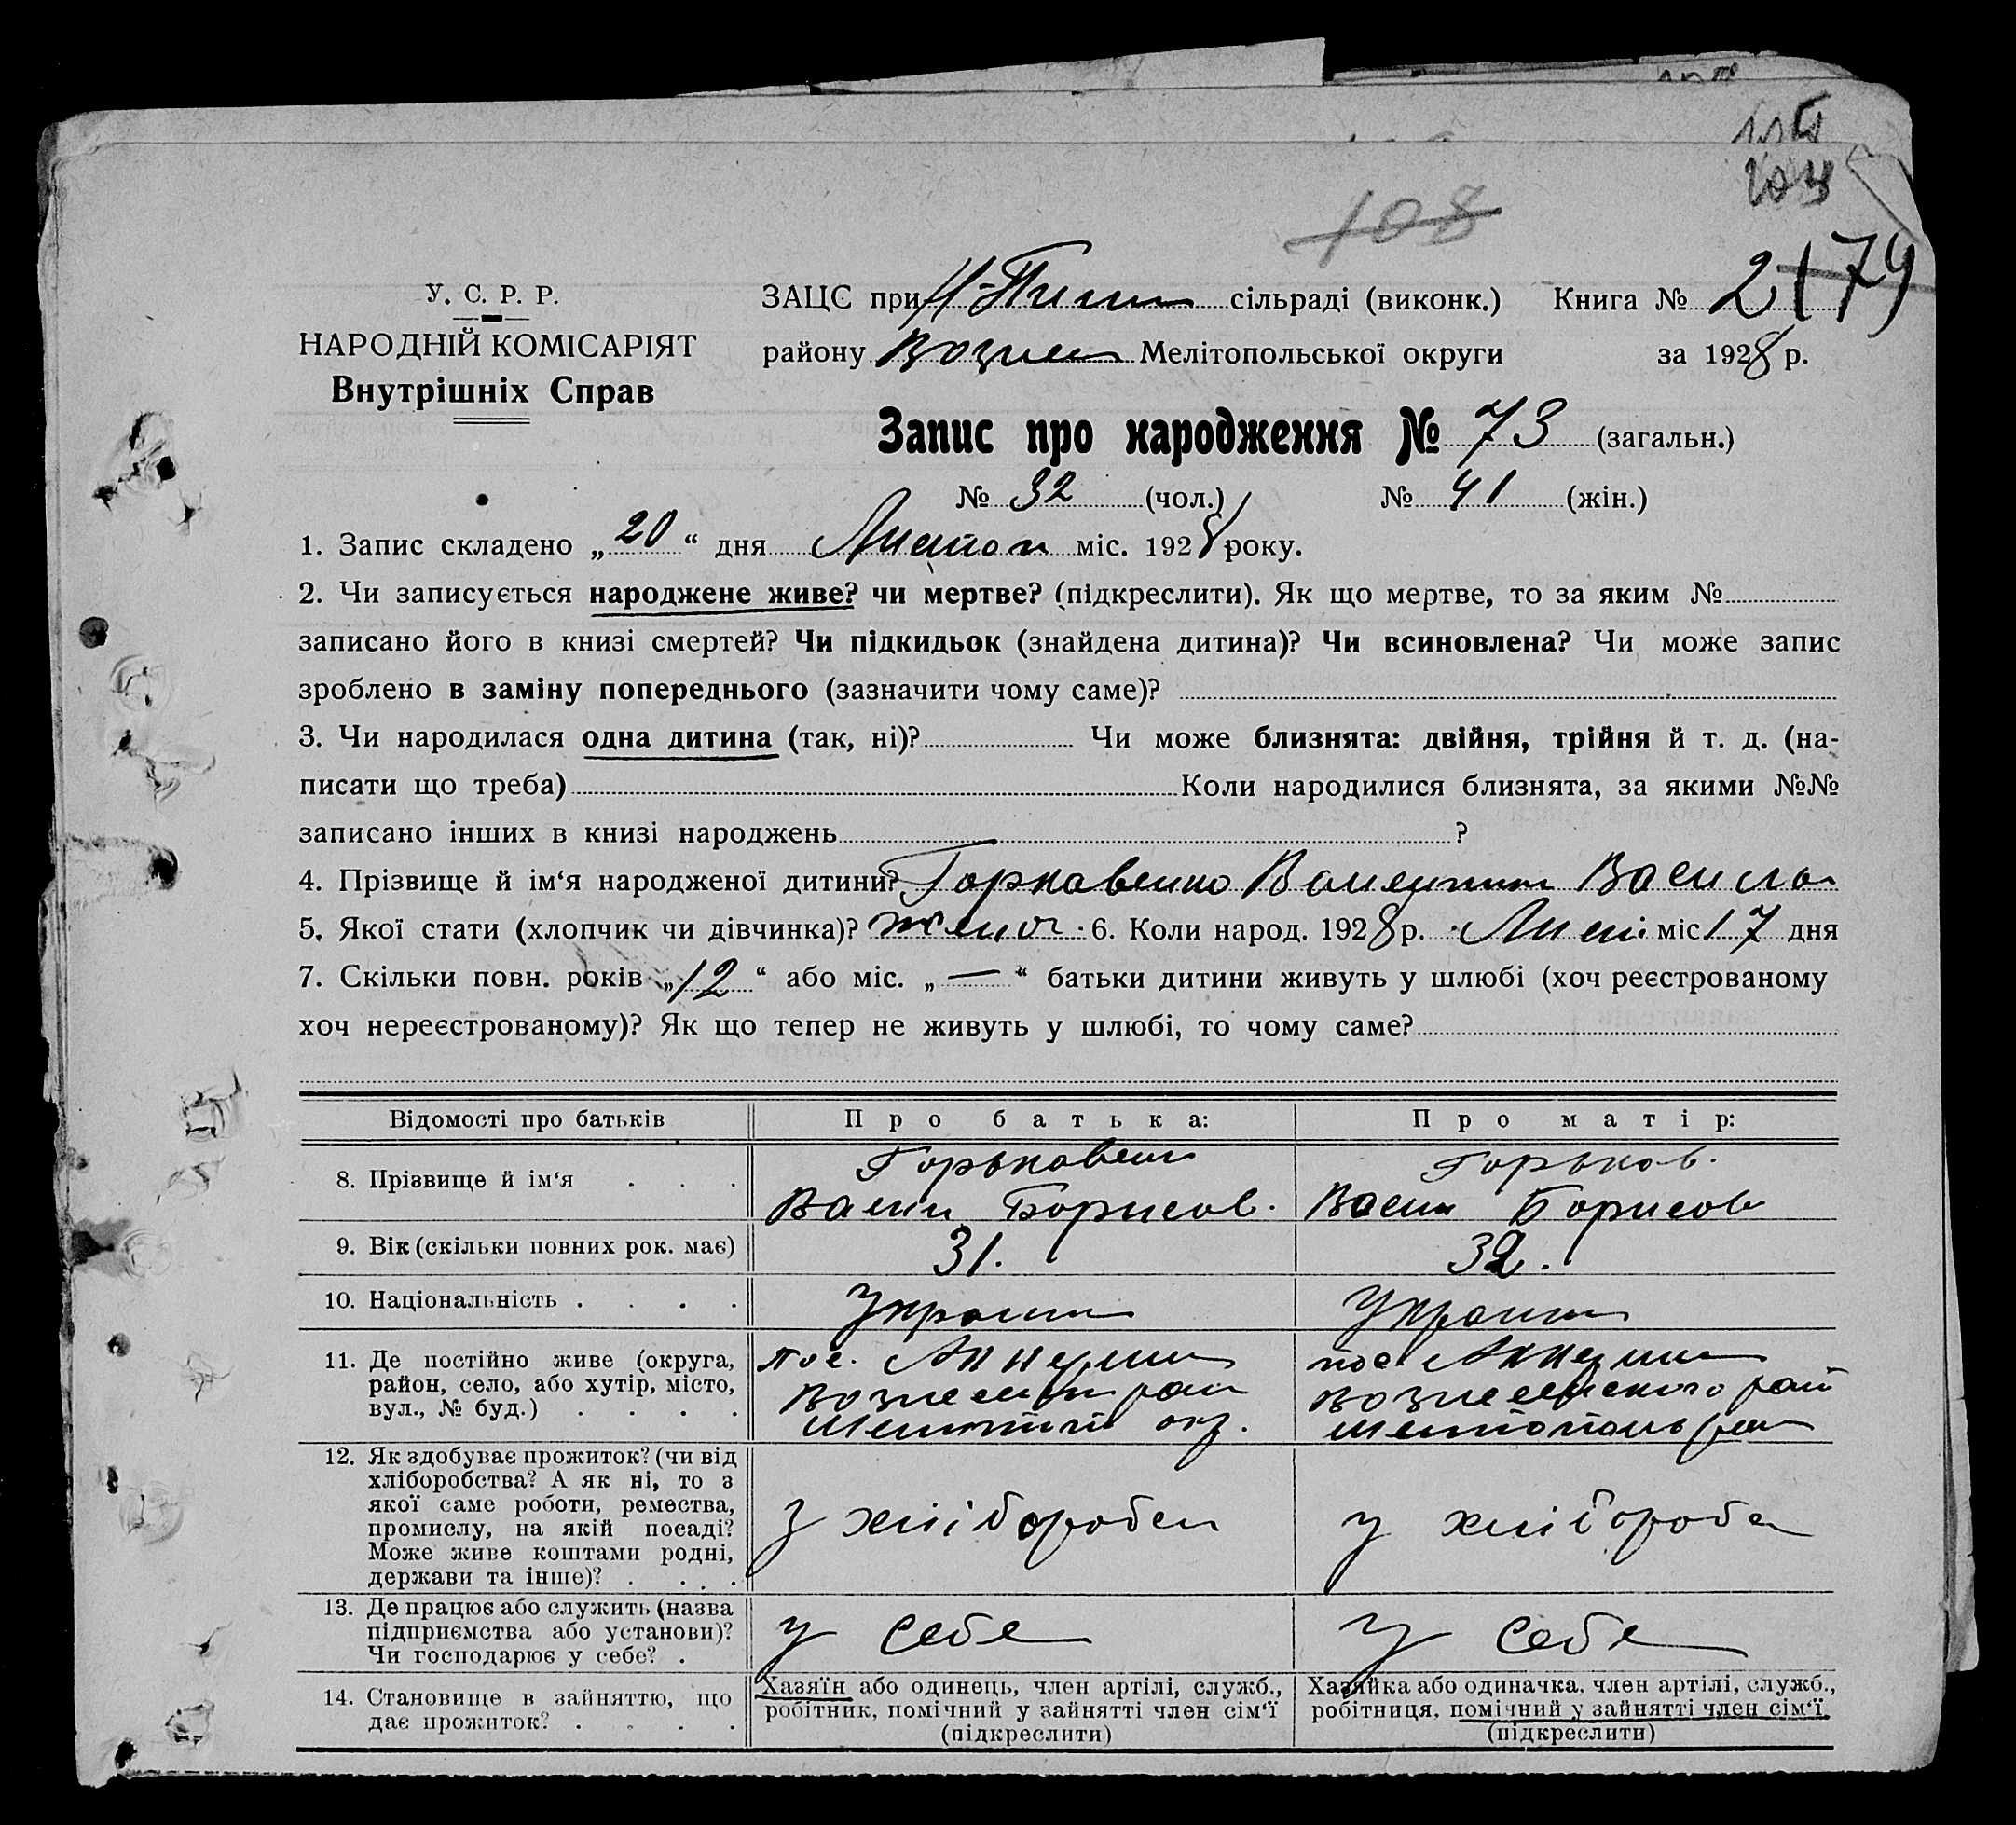 108
203
У. С. Р. Р.
НАРОДНІЙ КОМІСАРІЯТ
Внутрішніх Справ
ЗАЦС при сільраді (виконк.) Книга № 2 179
району Вознес Мелітопольської округи за 1928 р.
Запис про народження № 73 (загальн.)
№ 32 (чол.) № 41 (жін.)
1. Запис складено „20“ дня Листоп міс. 1928 року.
2. Чи записується народжене живе? чи мертве? (підкреслити). Як що мертве, то за яким №
записано його в книзі смертей? Чи підкидьок (знайдена дитина)? Чи всиновлена? Чи може запис
зроблено в заміну попереднього (зазначити чому саме)?
3. Чи народилася одна дитина (так, ні)? Чи може близнята: двійня, трійня й т. д. (на-
писати що треба) Коли народилися близнята, за якими №№
записано інших в книзі народжень ?
4. Прізвище й ім‘я народженої дитини? Горкавенко Валентин Васило
5. Якої стати (хлопчик чи дівчинка)? 6. Коли народ. 1928 р. Лист. міс 17 дня
7. Скільки повн. років „12“ або міс. „—“ батьки дитини живуть у шлюбі (хоч реєстрованому
хоч нереєстрованому)? Як що тепер не живуть у шлюбі, то чому саме?
Відомості про батьків Про батька: Про матір:
8. Прізвище й ім‘я Горькавен Горьков.
Васил Борисов. Васил Борисов
9. Вік (скільки повних рок. має) 31. 32.
10. Національність Украин Украин
11. Де постійно живе (округа, пос. пос
район, село, або хутір, місто, рай Вознесенского рай
вул., № буд.) окр.
12. Як здобуває прожиток? (чи від
хліборобства? А як ні, то з
якої саме роботи, ремества, з хлібороб у хлібороб
промислу, на якій посаді?
Може живе коштами родні,
держави та інше)?
13. Де працює або служить (назва
підприємства або установи)? у себе у себе
Чи господарює у себе?
14. Становище в зайняттю, що Хазяїн або одинець, член артілі, служб., Хазяйка або одиначка, член артілі, служб.,
дає прожиток? робітник, помічний у зайнятті член сім‘ї робітниця, помічний у зайнятті член сім‘ї
(підкреслити) (підкреслити)